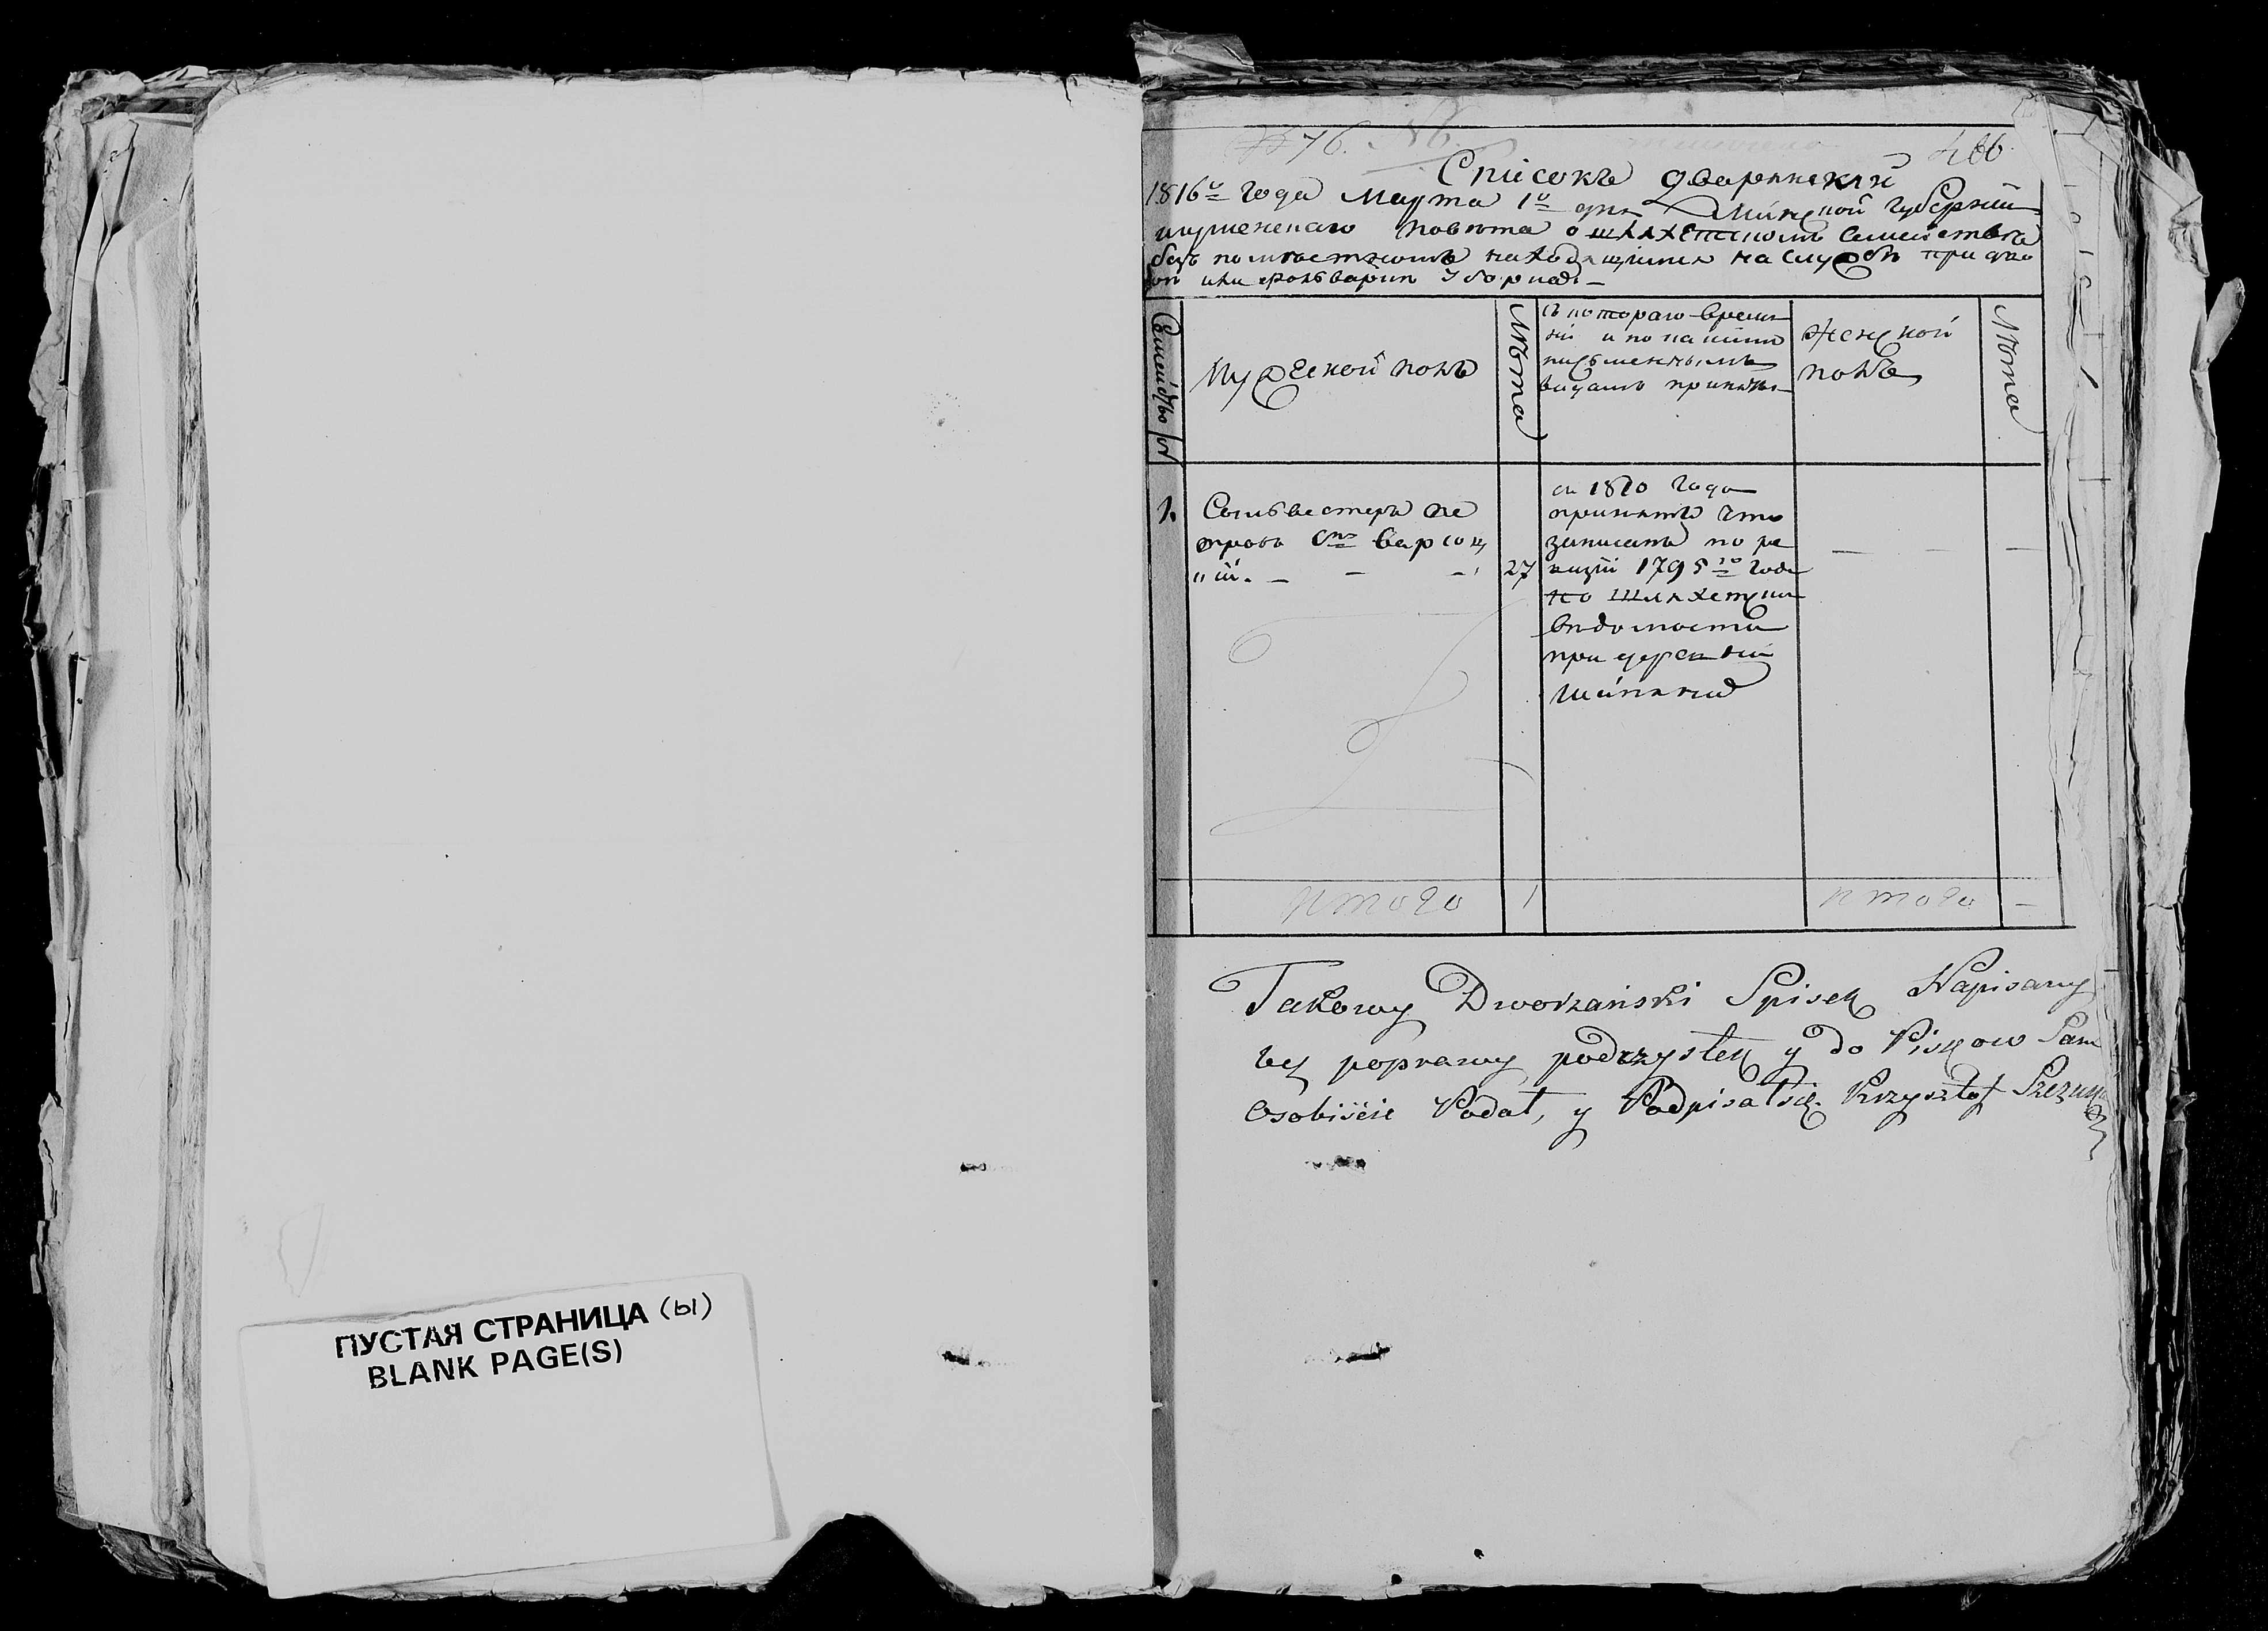 ПУСТАЯ СТРАНИЦА (ы)
BLANK PAGE(S)
№ 76.
466
Списокъ дворянскій
1816го Года Марта 1го дня Минской Губерніи
игуменскаго повѣта о шляхетскомъ семействѣ
безъ помѣстномъ находящимся на службѣ при дво
рѣ или фольварки Уборкахъ
Семейство №
Мужеской полъ
Лѣта
съ котораго время
ни и по какимъ
письменнымъ
видамъ приняты
Женской
полъ
Лѣта
1.
Сыльвестеръ пе
тровъ снъ Барсоц
кій. — — —
27
съ 1810 Года
принятъ что
записанъ по ре
визіи 1795го Года
по шляхетской
вѣдомости
при
— — —
итого
1
итого
—
Takowy Dworzański Spisek Napisany
by poprawy podczystek y do Piskow Sam
Osobiście Podał, y Podpisał się. Krzysztof